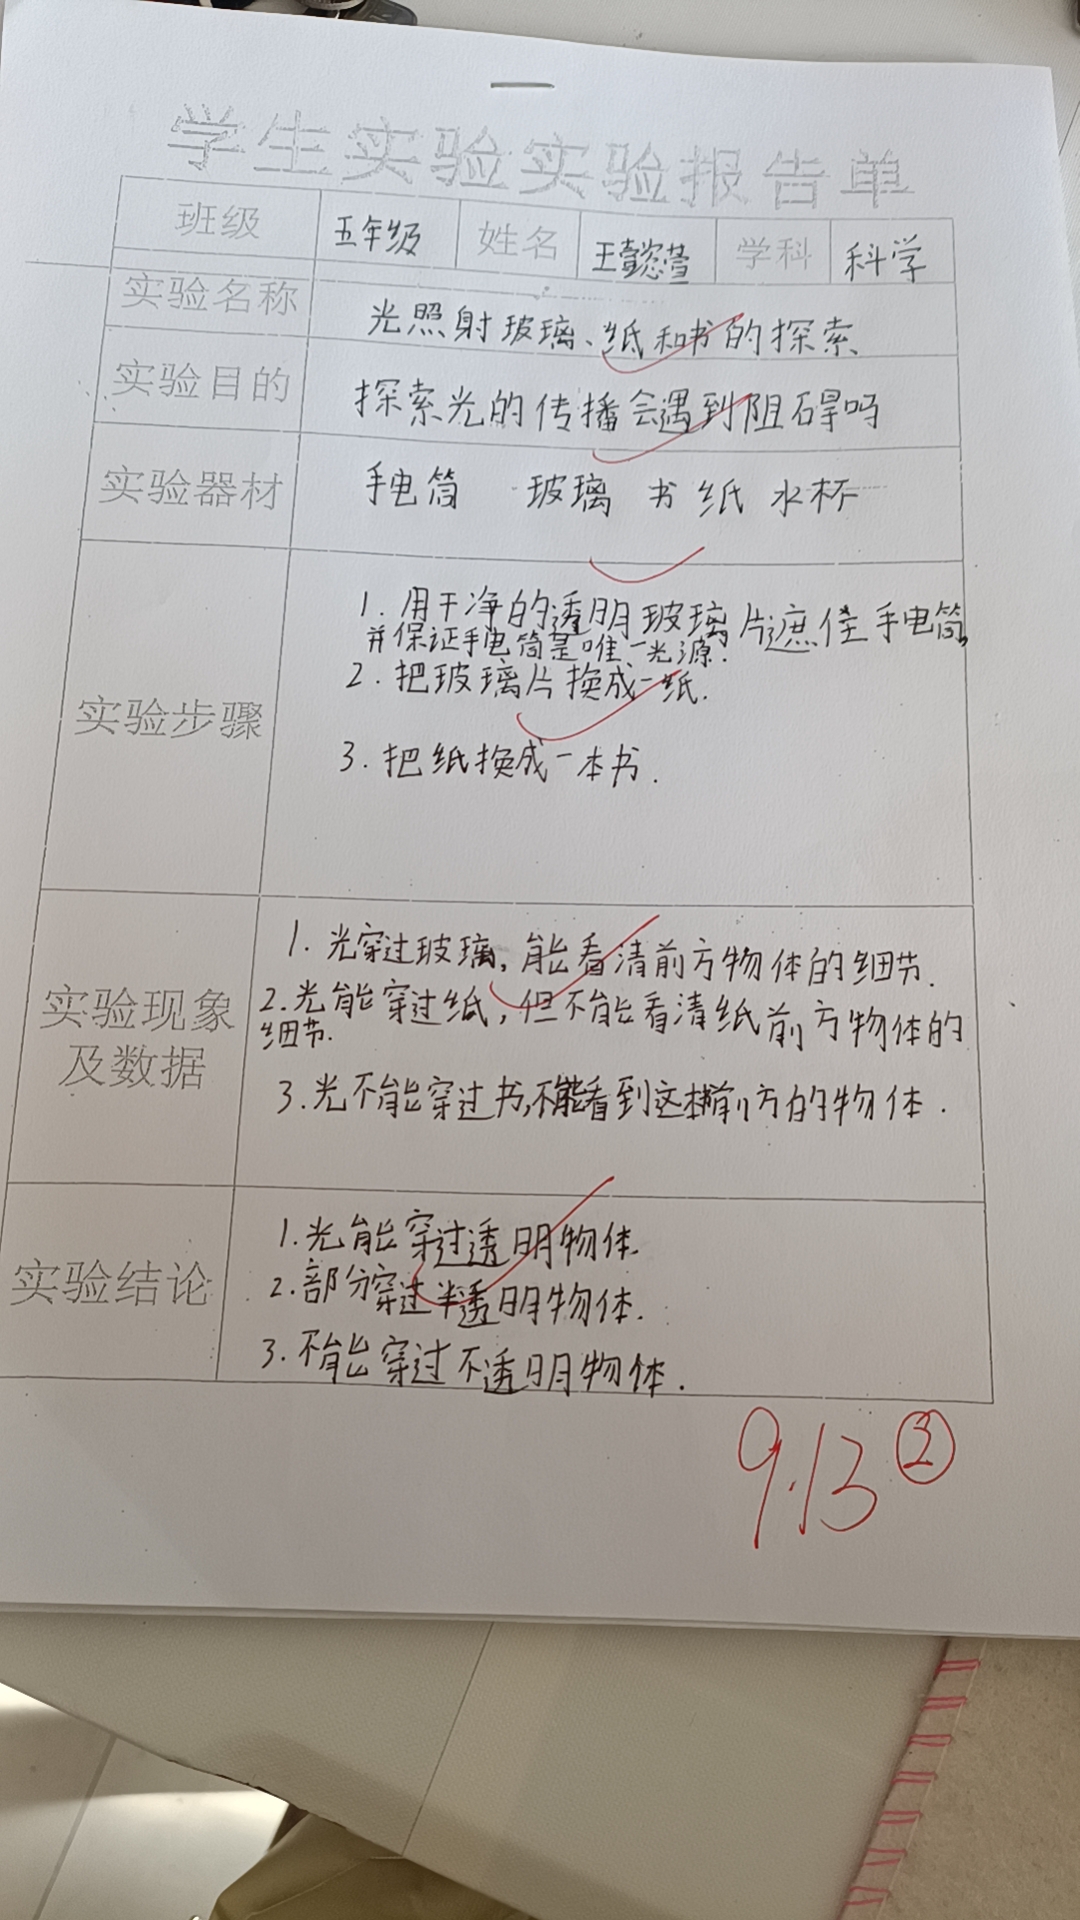 学生实验实验报告单
班级 五年级 姓名 王懿萱 学科 科学
实验名称 光照射玻璃、纸和书的探索
实验目的 探索光的传播会遇到阻碍吗
实验器材 手电筒 玻璃 书 纸 水杯
实验步骤
1. 用干净的透明玻璃片遮住手电筒,
并保证手电筒是唯一光源.
2. 把玻璃片换成一纸.
3. 把纸换成一本书.
实验现象
及数据
1. 光穿过玻璃,能看清前方物体的细节.
2.光能穿过纸,但不能看清纸前方物体的
细节.
3.光不能穿过书,不能看到这本书前方的物体.
实验结论
1.光能穿过透明物体.
2.部分穿过半透明物体.
3.不能穿过不透明物体.
9.13 ②